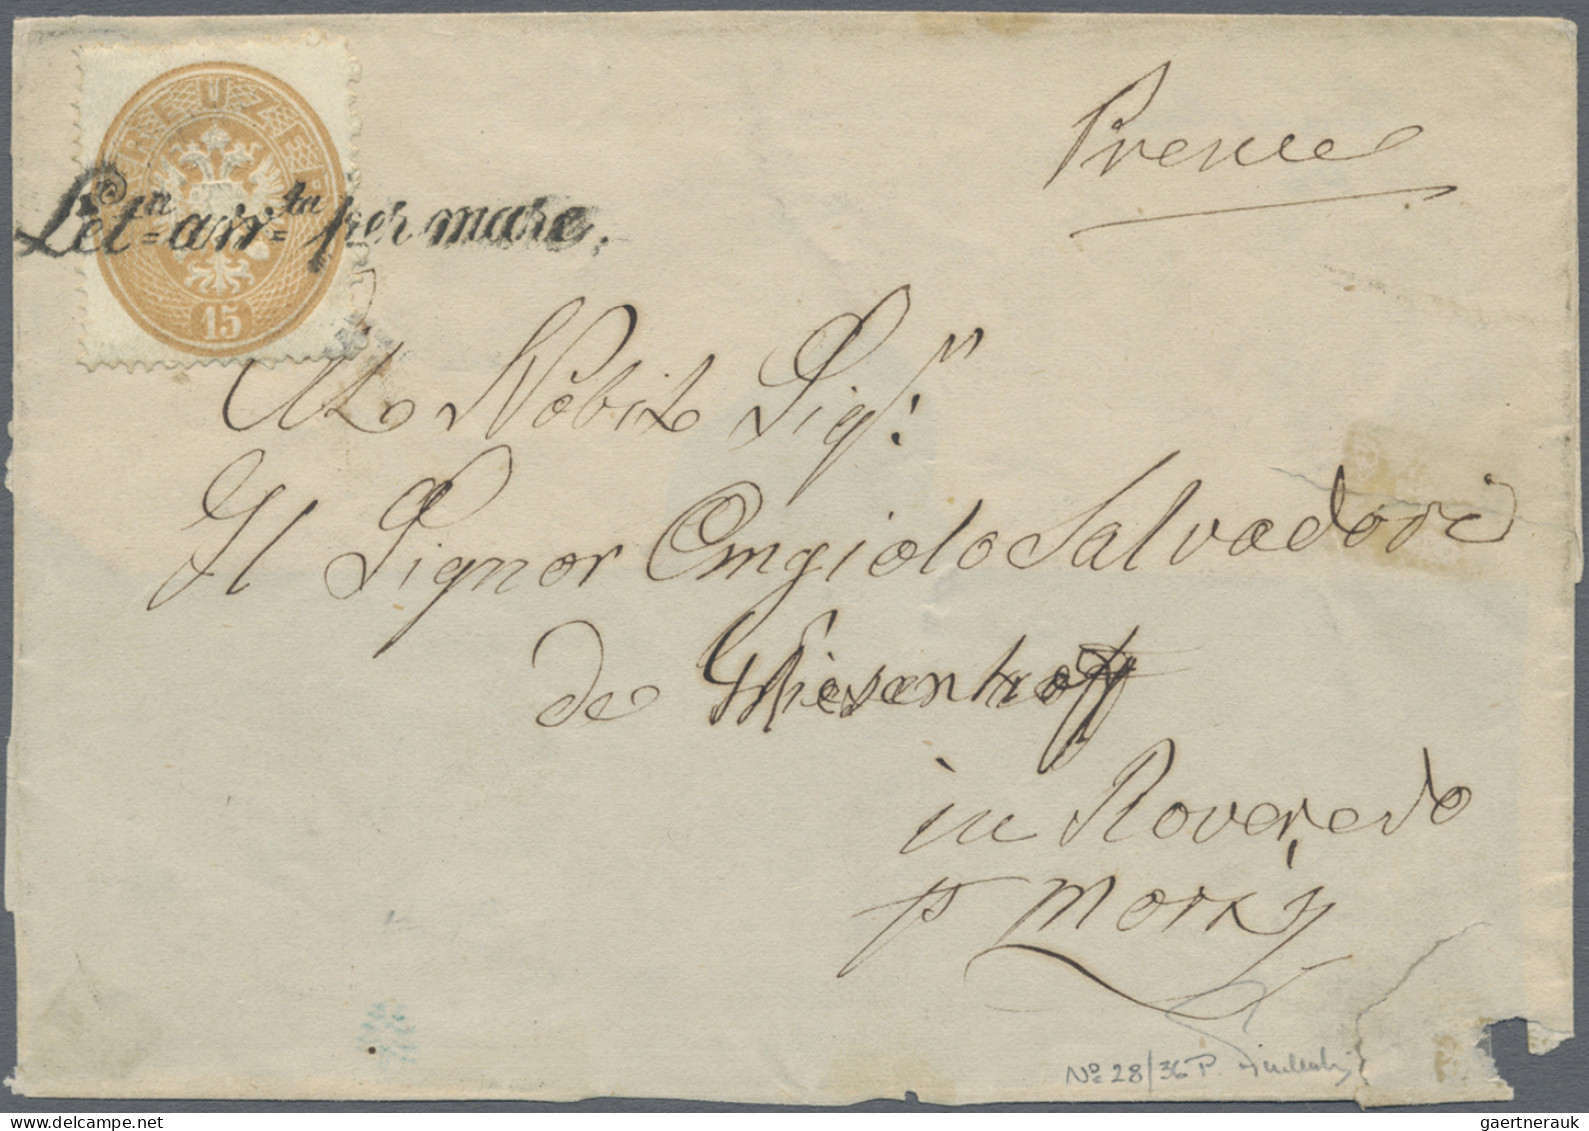 KREUZER
15
Let.n arr.ta per mare.
Al Nobil Sigr.
Il Signor Angiolo Salvadori
de Wiesenhoff
in Roveredo
p Mori
No 28/36 P.
gaertnerauk